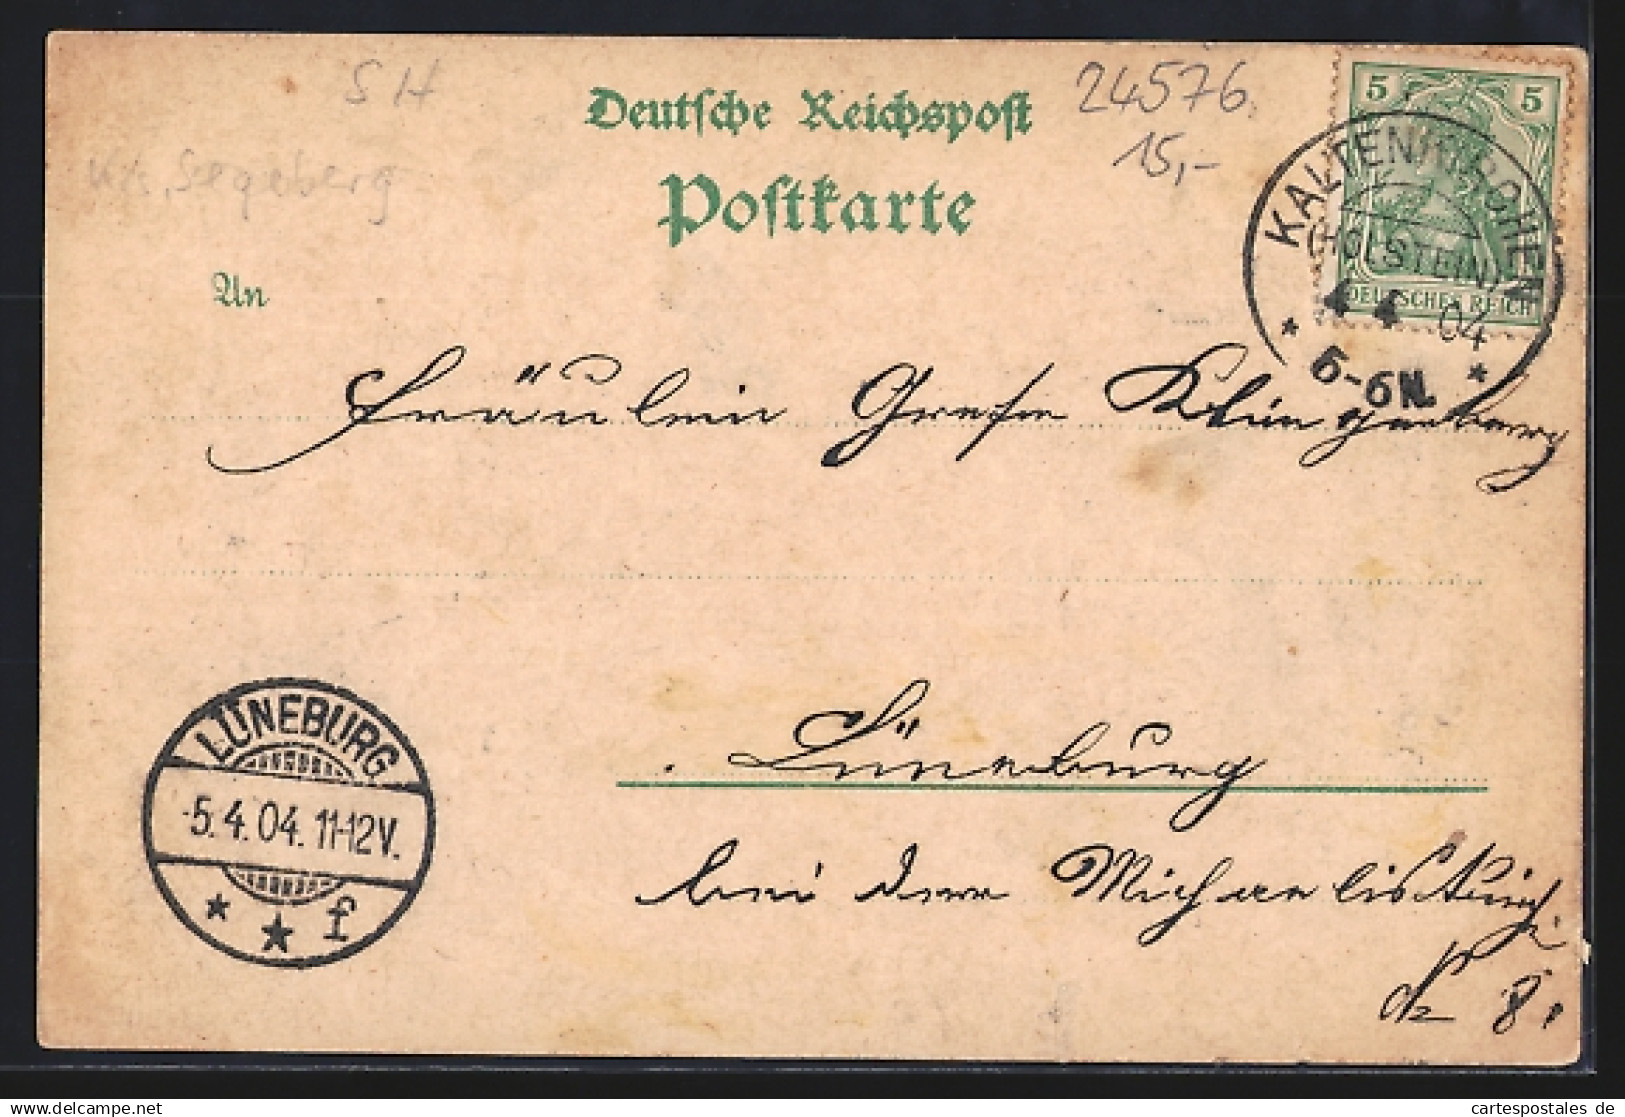 SH
24576.
15,-
Krs. Segeberg
Deutsche Reichspost
Postkarte
An
5 5
DEUTSCHES REICH
KALTENKIRCHEN
(HOLSTEIN)
4 4 04
5-6N.
Fräulein Grete Klingenberg
Lüneburg
bei der Michaeliskirch.
№ 8.
LÜNEBURG
-5.4.04. 11-12V.
* * f
cartespostales de